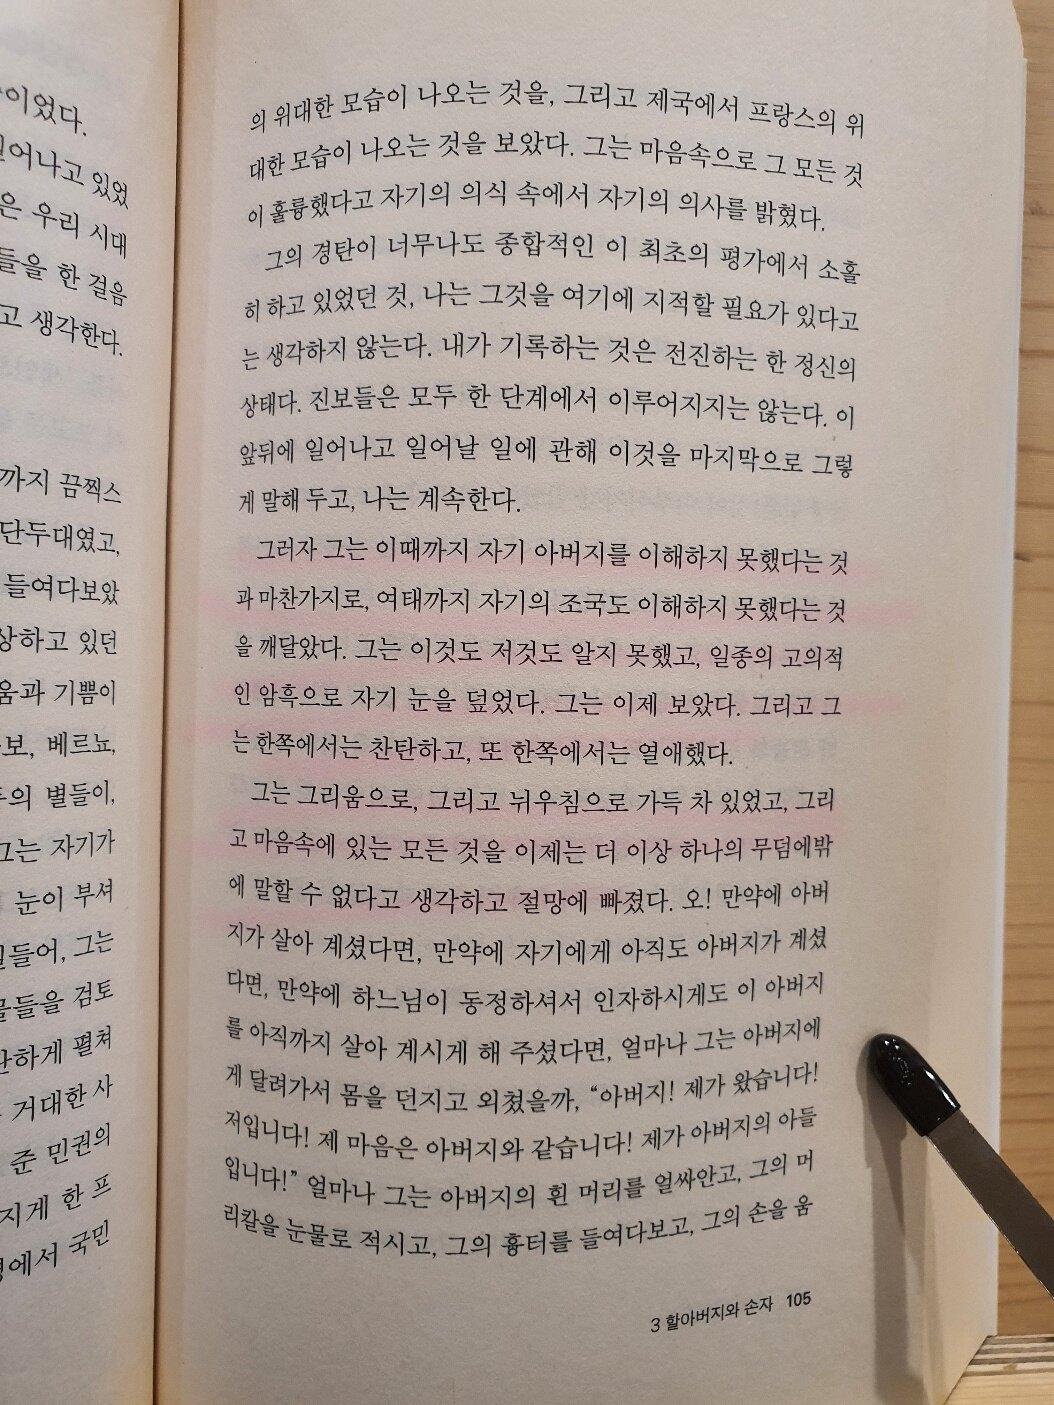 이었다.
어나고 있었
은 우리 시대
들을 한 걸음
고 생각한다.
까지 끔찍스
단두대였고,
들여다보았
상하고 있던
움과 기쁨이
보, 베르뇨,
의 별들이,
그는 자기가
눈이 부셔
들어, 그는
물들을 검토
단하게 펼쳐
거대한 사
준 민권의
지게 한 프
에서 국민
의 위대한 모습이 나오는 것을, 그리고 제국에서 프랑스의 위
대한 모습이 나오는 것을 보았다. 그는 마음속으로 그 모든 것
이 훌륭했다고 자기의 의식 속에서 자기의 의사를 밝혔다.
그의 경탄이 너무나도 종합적인 이 최초의 평가에서 소홀
히 하고 있었던 것, 나는 그것을 여기에 지적할 필요가 있다고
는 생각하지 않는다. 내가 기록하는 것은 전진하는 한 정신의
상태다. 진보들은 모두 한 단계에서 이루어지지는 않는다. 이
앞뒤에 일어나고 일어날 일에 관해 이것을 마지막으로 그렇
게 말해 두고, 나는 계속한다.
그러자 그는 이때까지 자기 아버지를 이해하지 못했다는 것
과 마찬가지로, 여태까지 자기의 조국도 이해하지 못했다는 것
을 깨달았다. 그는 이것도 저것도 알지 못했고, 일종의 고의적
인 암흑으로 자기 눈을 덮었다. 그는 이제 보았다. 그리고 그
는 한쪽에서는 찬탄하고, 또 한쪽에서는 열애했다.
그는 그리움으로, 그리고 뉘우침으로 가득 차 있었고, 그리
고 마음속에 있는 모든 것을 이제는 더 이상 하나의 무덤에밖
에 말할 수 없다고 생각하고 절망에 빠졌다. 오! 만약에 아버
지가 살아 계셨다면, 만약에 자기에게 아직도 아버지가 계셨
다면, 만약에 하느님이 동정하셔서 인자하시게도 이 아버지
를 아직까지 살아 계시게 해 주셨다면, 얼마나 그는 아버지에
게 달려가서 몸을 던지고 외쳤을까, “아버지! 제가 왔습니다!
저입니다! 제 마음은 아버지와 같습니다! 제가 아버지의 아들
입니다!” 얼마나 그는 아버지의 흰 머리를 얼싸안고, 그의 머
리칼을 눈물로 적시고, 그의 흉터를 들여다보고, 그의 손을 움
3 할아버지와 손자 105